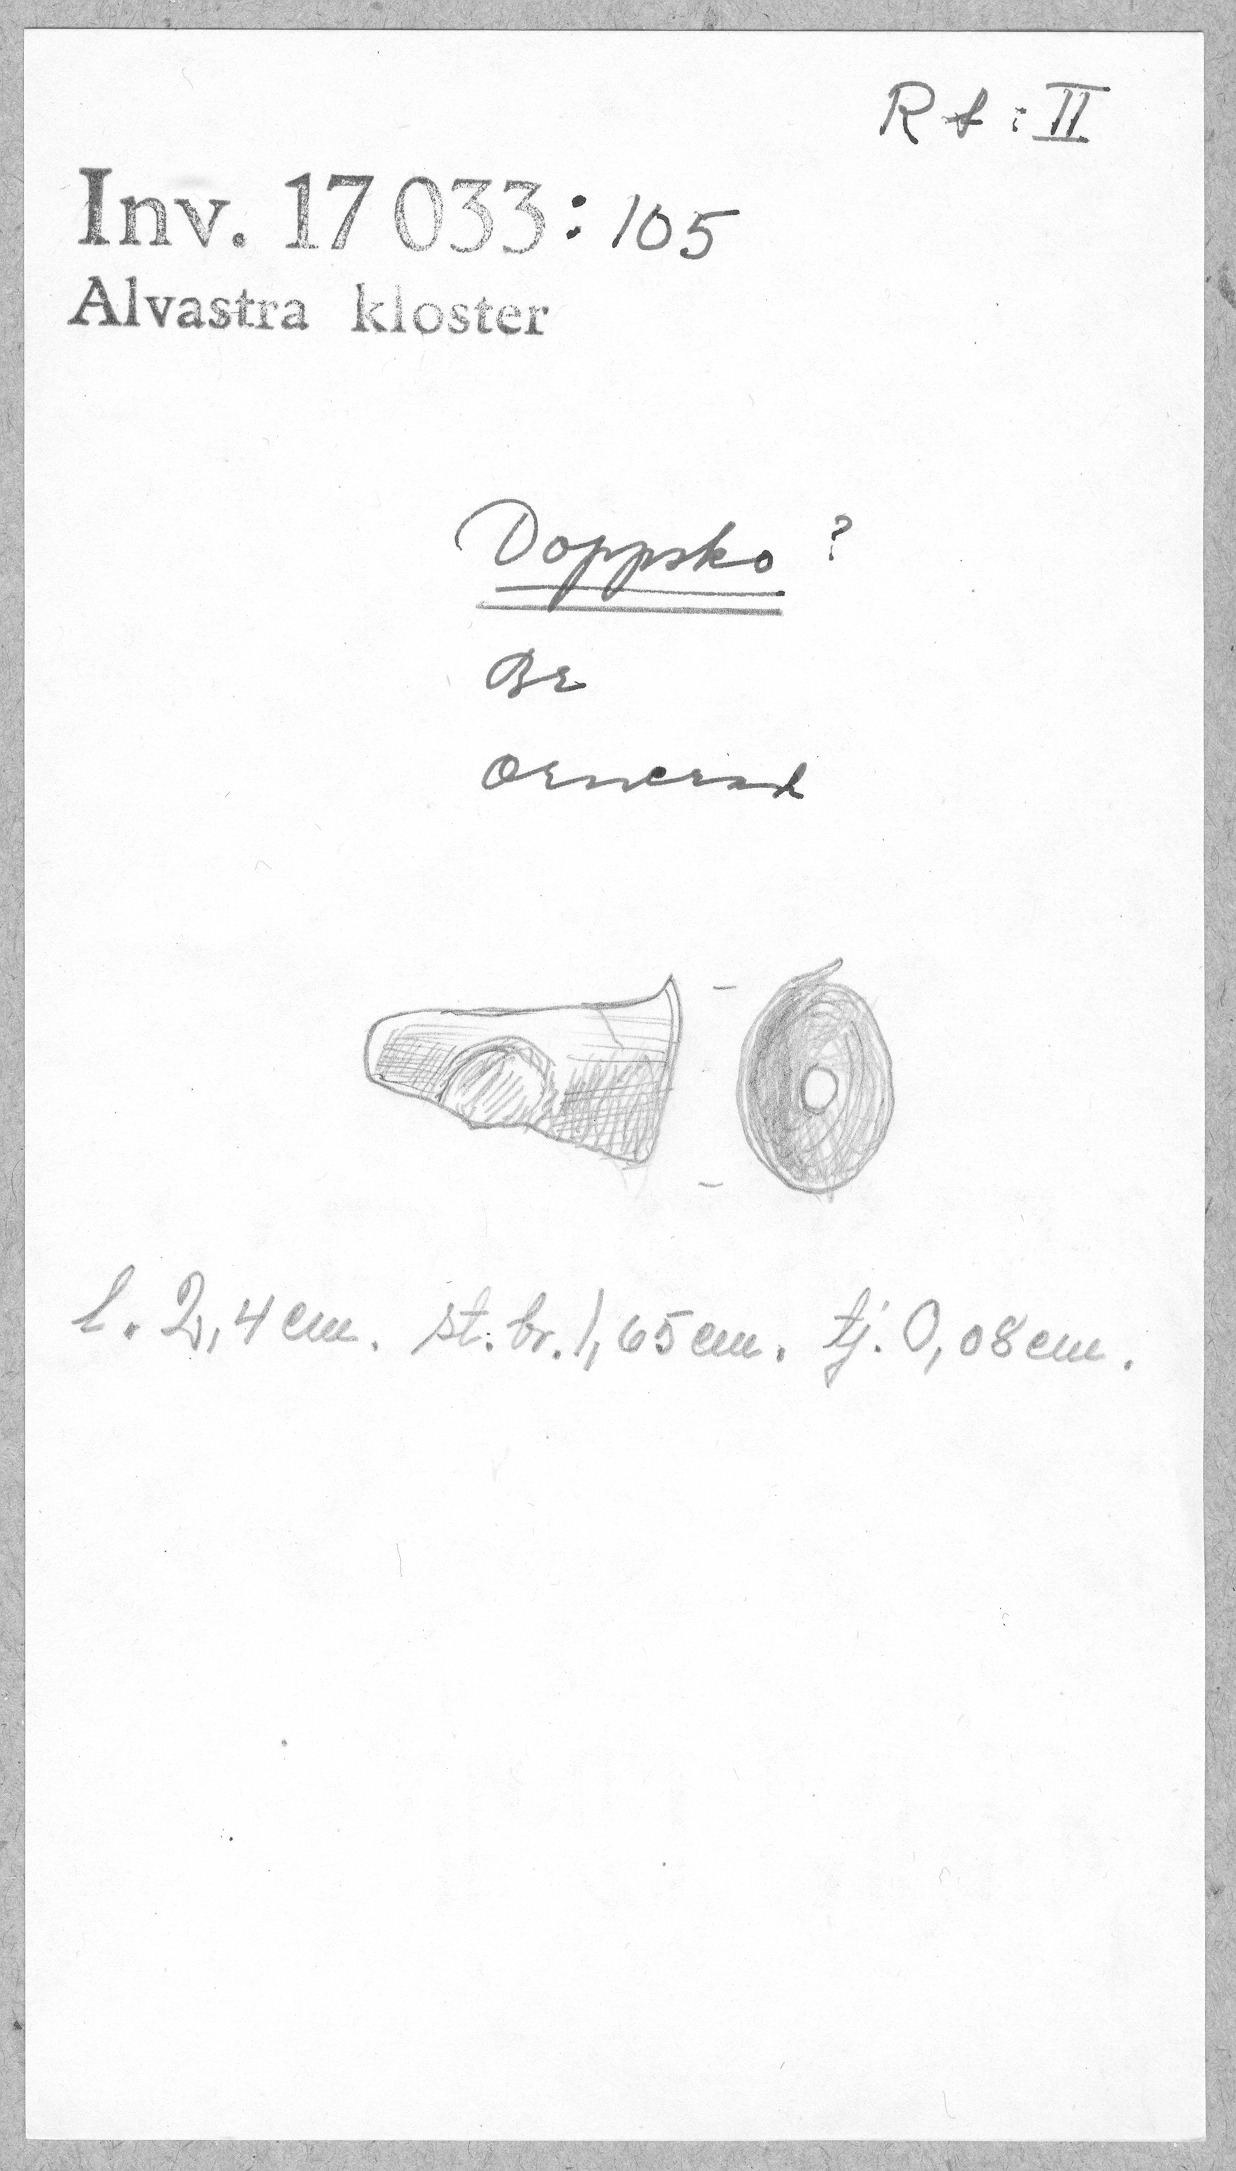 Rf: II
Inv. 17 033:105
Alvastra kloster
Doppsko ?
Br
Ornerad
l. 2,4 cm. st. br. 1,65 cm. tj. 0,08 cm.